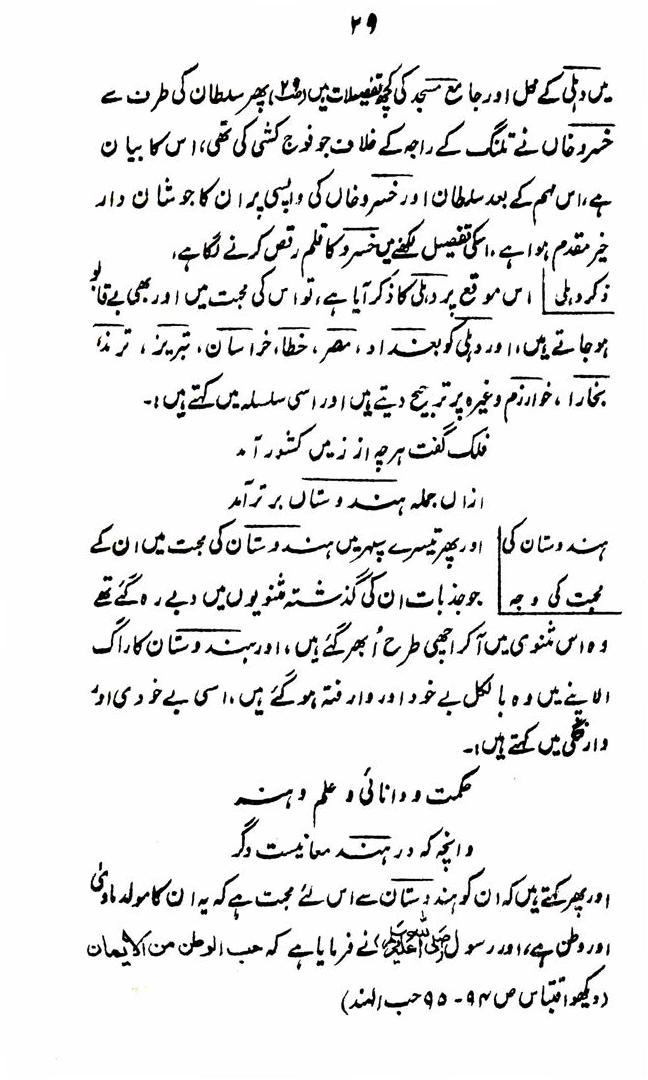 ۲۹
میں دہلی کے محل اور جامع مسجد کی کچھ تفصیلات ہیں (صفحہ ۲۹) پھر سلطان کی طرف سے
خسرو خاں نے تلنگ کے راجہ کے خلاف جو فوج کشی کی تھی، اس کا بیان
ہے، اس مہم کے بعد سلطان اور خسرو خاں کی واپسی پر ان کا جو شان دار
خیر مقدم ہوا ہے، اسکی تفصیل لکھنے میں خسرو کا قلم رقص کرنے لگا ہے،
ذکر دہلی اس موقع پر دہلی کا ذکر آیا ہے، تو اس کی محبت میں اور بھی بے قابو
ہو جاتے ہیں، اور دہلی کو بغداد، مصر، خطا، خراسان، تبریز، ترند،
بخارا، خوارزم وغیرہ پر ترجیح دیتے ہیں اور اسی سلسلہ میں کہتے ہیں:۔
فلک گفت ہر چہ از زمیں کشور آمد
ازاں جملہ ہندوستاں بر تر آمد
ہندوستان کی اور پھر تیسرے سپہر میں ہندوستان کی محبت میں ان کے
محبت کی وجہ جو جذبات ان کی گذشتہ مثنویوں میں دبے رہ گئے تھے
وہ اس مثنوی میں آکر اچھی طرح اُبھر گئے ہیں، اور ہندوستان کا راگ
الاپنے میں وہ بالکل بے خود اور وارفتہ ہو گئے ہیں، اسی بے خودی اور
وارفتگی میں کہتے ہیں:۔
حکمت و دانائی و علم و ہنر
وانچہ کہ در ہند معانیست دگر
اور پھر کہتے ہیں کہ ان کو ہندوستان سے اس لئے محبت ہے کہ یہ ان کا مولد ماویٰ
اور وطن ہے، اور رسول صلی اللہ علیہ وسلم نے فرمایا ہے کہ حب الوطن من الایمان
(دیکھو اقتباس ص ۹۴-۹۵ حب الہند)